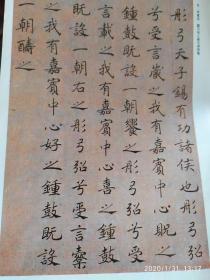 彤弓天子錫有功諸侯也彤弓弨
兮受言藏之我有嘉賓中心貺之
鍾鼓既設一朝饗之彤弓弨兮受
言載之我有嘉賓中心喜之鍾鼓
既設一朝右之彤弓弨兮受言櫜
之我有嘉賓中心好之鍾鼓既設
一朝醻之
2020/1/31